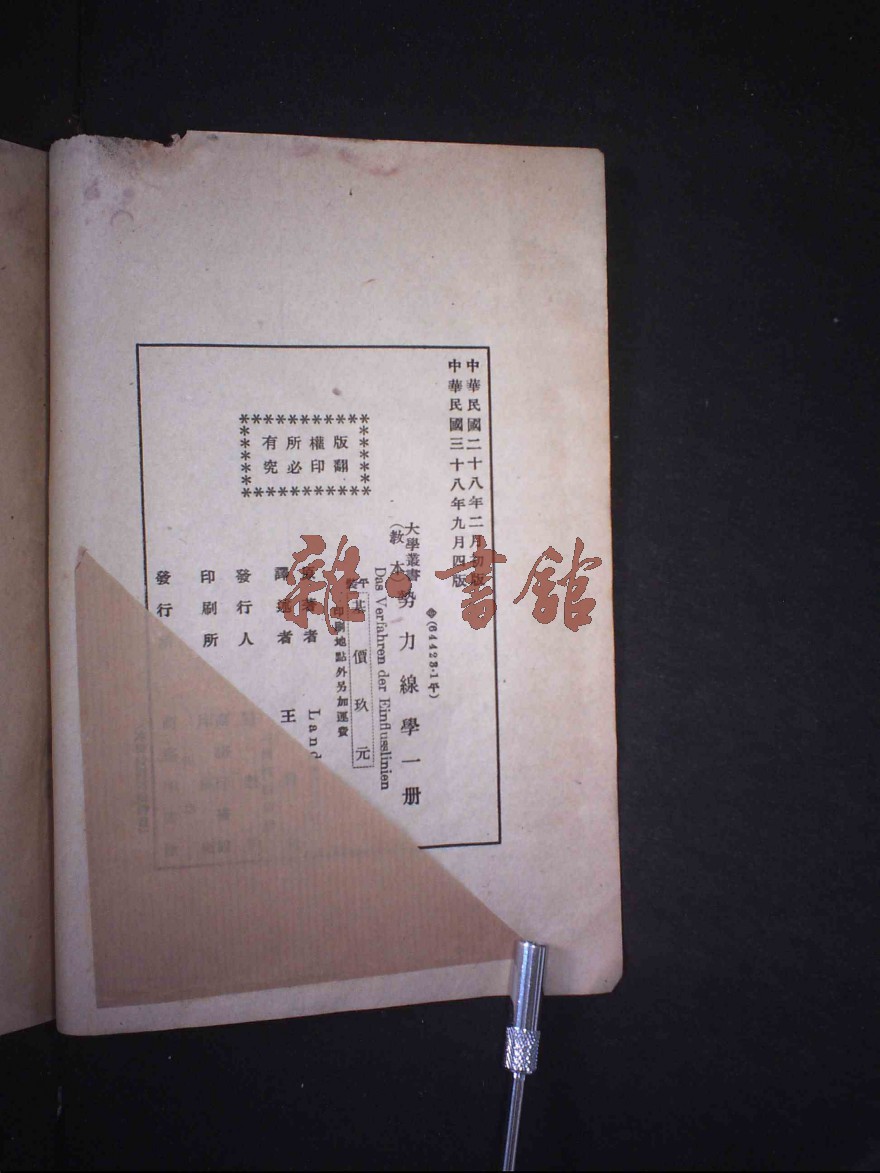 中華民國二十八年二月初版
中華民國三十八年九月四版
◆(64423·1平)
大學叢書
(教本)
勢力線學一册
Das Verfahren der Einflusslinien
平裝
基價玖元
印刷地點外另加運費
原著者 Land
譯述者 王
發行人
印刷所
發行
版權所有
翻印必究
雜·書館